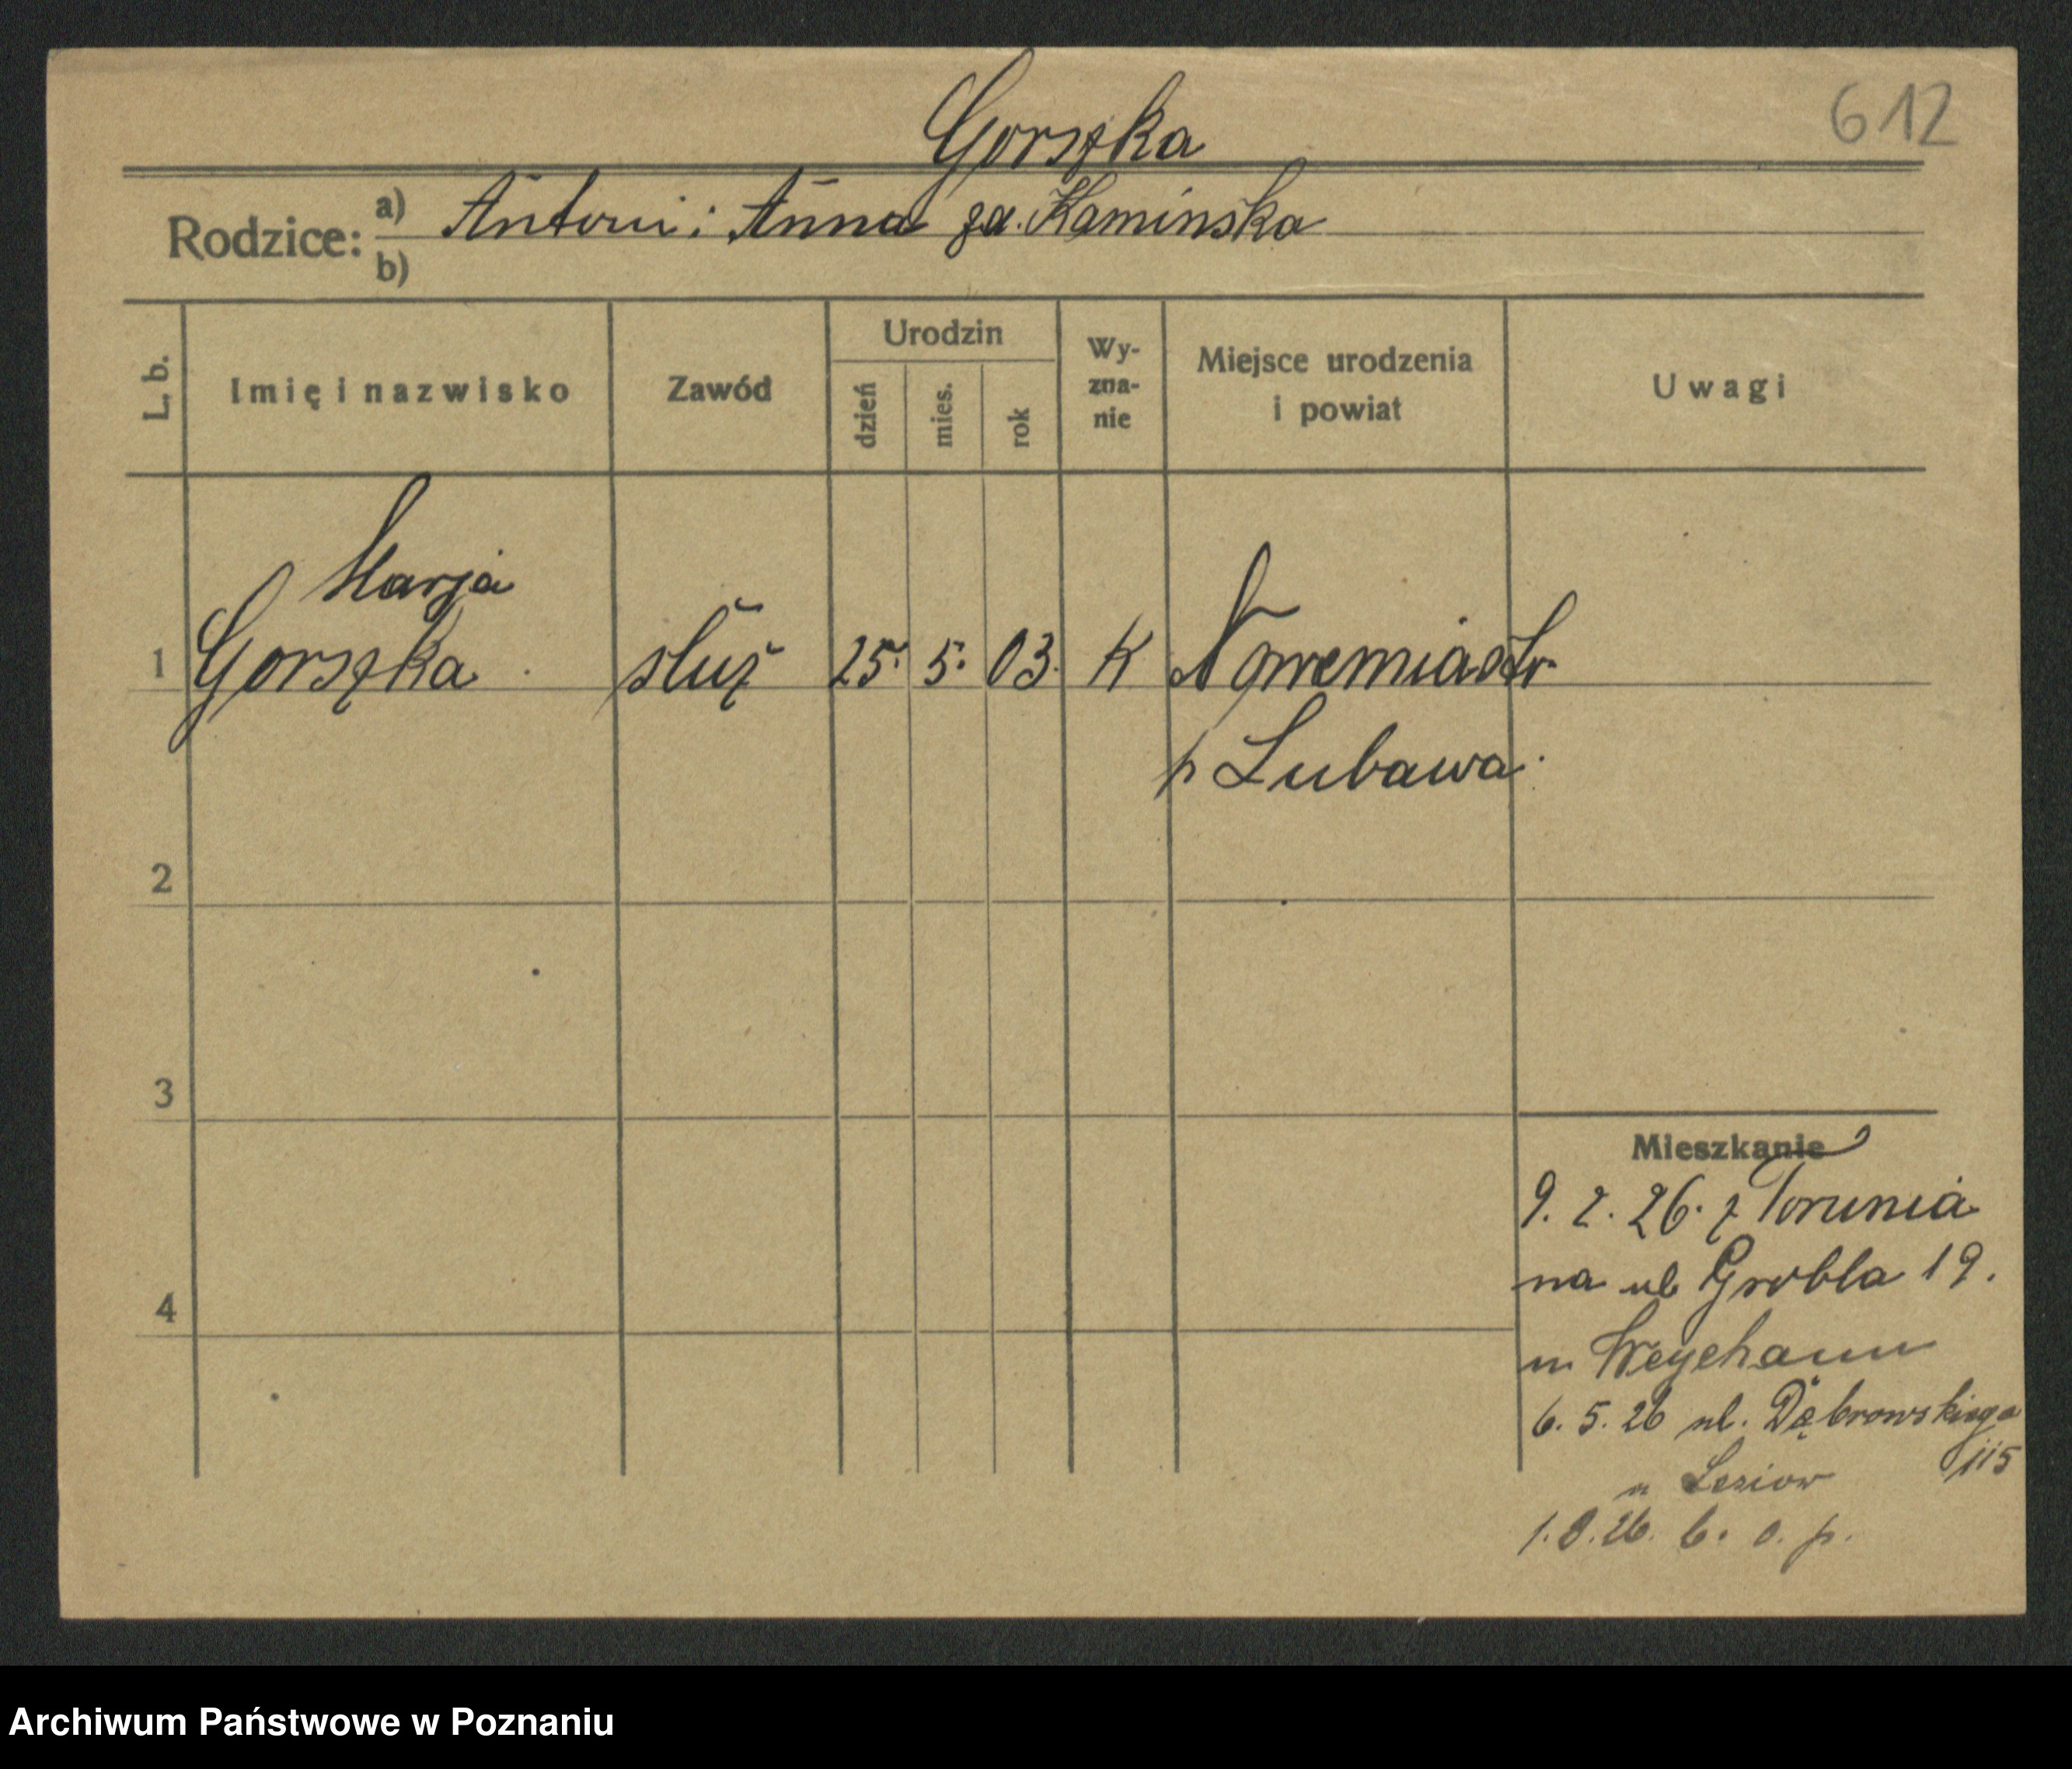 612
Gorszka
Rodzice: a) Antoni i Anna zd. Kamińska
b)
L. b.
Imię i nazwisko
Zawód
Urodzin
dzień
mies.
rok
Wy-
zna-
nie
Miejsce urodzenia
i powiat
Uwagi
Marja
1 Gorszka służ 25. 5. 03. K Nowemiasto
p Lubawa.
2
3
4
Mieszkanie
9. 2. 26. z Torunia
na ul Grobla 19.
u
6. 5. 26 ul. Dąbrowskiego
115
u
26. b. o. p.
Archiwum Państwowe w Poznaniu